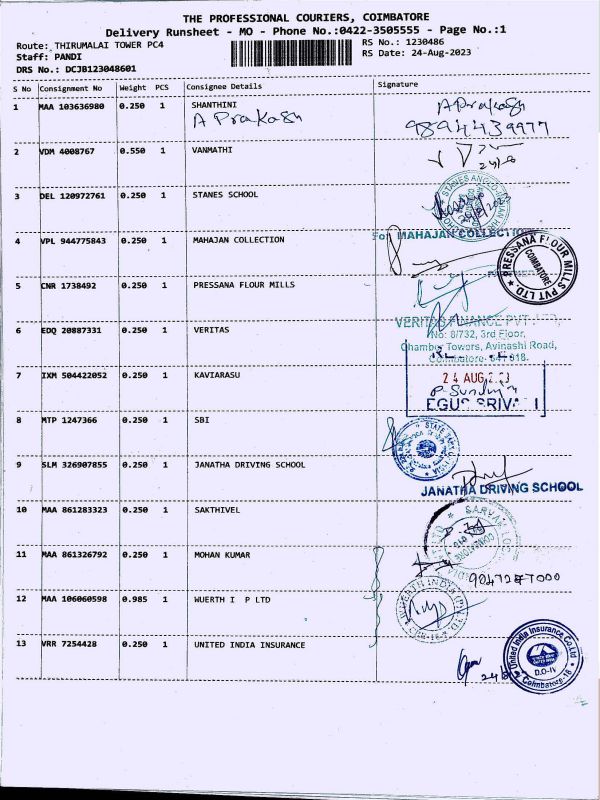 THE PROFESSIONAL COURIERS, COIMBATORE
Delivery Runsheet - MO - Phone No.:0422-3505555 - Page No.:1
Route: THIRUMALAI TOWER PC4 RS No.: 1230486
Staff: PANDI RS Date: 24-Aug-2023
DRS No.: DCJB123048601
S No Consignment No Weight PCS Consignee Details Signature
1 MAA 103636980 0.250 1 SHANTHINI
A Prakash APrakash
9894439977
2 VDM 4008767 0.550 1 VANMATHI
3 DEL 120972761 0.250 1 STANES SCHOOL
4 VPL 944775843 0.250 1 MAHAJAN COLLECTION
For MAHAJAN COLLECTION
PRESSANA FLOUR MILLS PVT LTD.
COIMBATORE
5 CNR 1738492 0.250 1 PRESSANA FLOUR MILLS
6 EDQ 20887331 0.250 1 VERITAS
VERITAS FINANCE PVT LTD,
No: 8/732, 3rd Floor,
Chamber Towers, Avinashi Road,
Coimbatore- 641 018.
7 IXM 504422052 0.250 1 KAVIARASU
24 AUG
8 MTP 1247366 0.250 1 SBI
9 SLM 326907855 0.250 1 JANATHA DRIVING SCHOOL
JANATHA DRIVING SCHOOL
10 MAA 861283323 0.250 1 SAKTHIVEL
11 MAA 861326792 0.250 1 MOHAN KUMAR
12 MAA 106060598 0.985 1 WUERTH I P LTD
WUERTH INDIA (P) LTD
13 VRR 7254428 0.250 1 UNITED INDIA INSURANCE
United India Insurance Co.Ltd
D.O-IV
Coimbatore-18